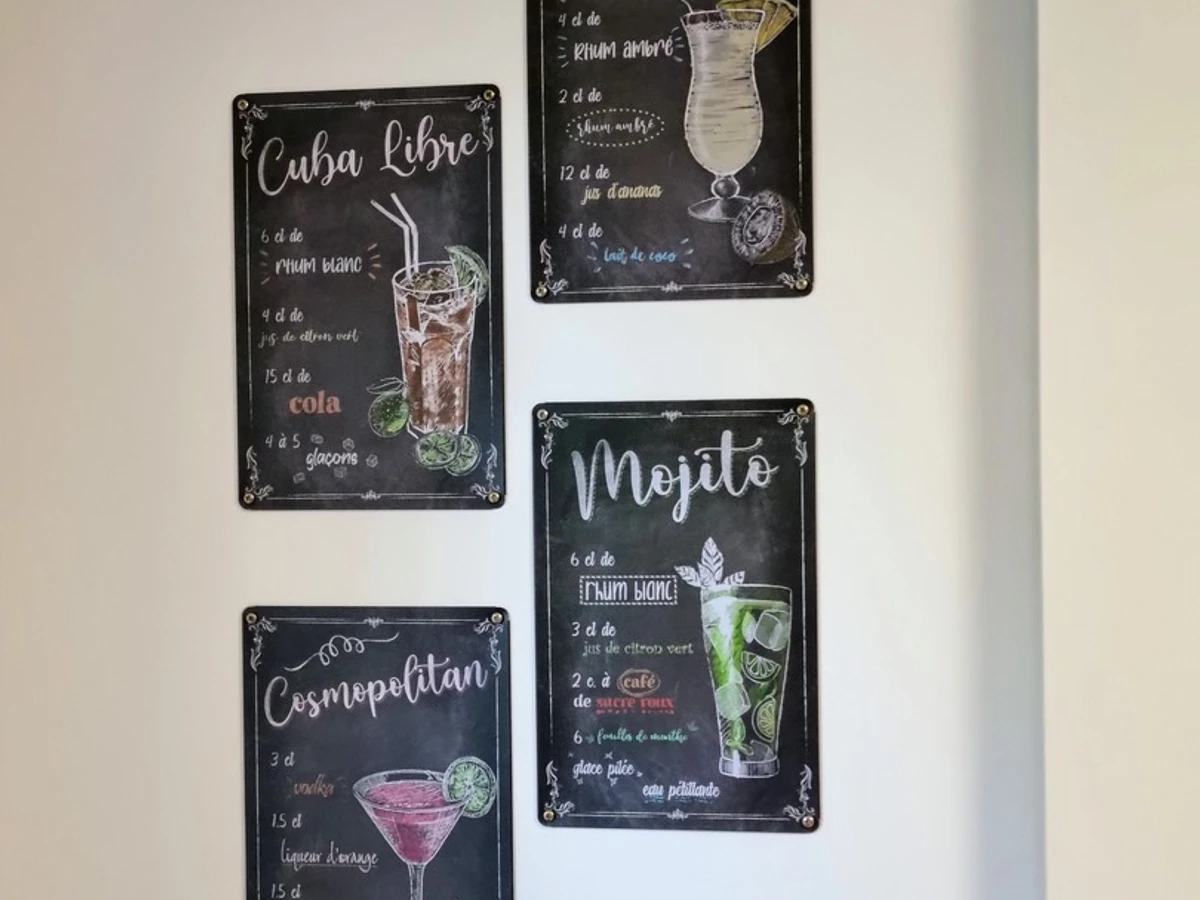 Cuba Libre
6 cl de
rhum blanc
4 cl de
jus de citron vert
15 cl de
cola
4 à 5
glaçons
4 cl de
Rhum ambré
2 cl de
rhum ambré
12 cl de
jus d'ananas
4 cl de
lait de coco
Cosmopolitan
3 cl
vodka
1.5 cl
liqueur d'orange
1.5 cl
Mojito
6 cl de
rhum blanc
3 cl de
jus de citron vert
2 c. à café
de sucre roux
6 feuilles de menthe
glace pilée
eau pétillante